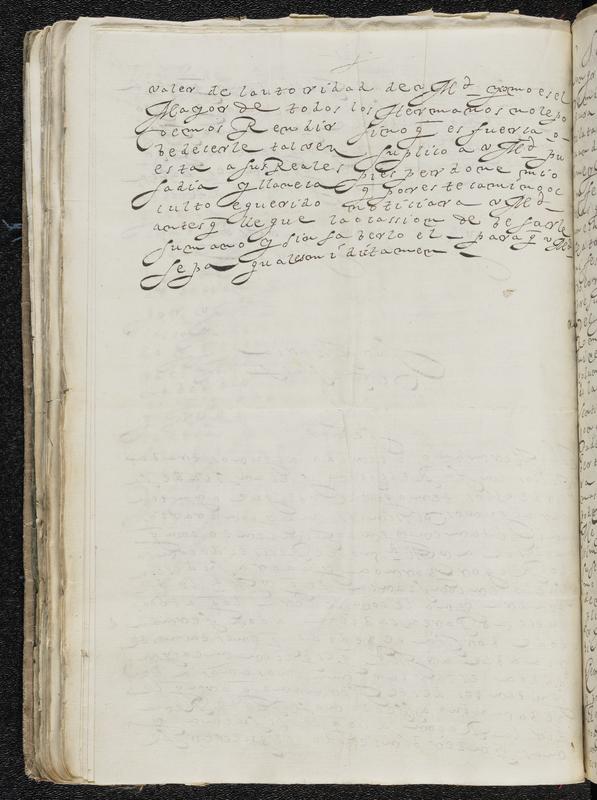 valer de la utoridad de v Md como es el
Mayor de todos los Hermanos no le po
demos Rendir sino q es fuerça o
bedecerle tal ven suplico a v Md pu
esta a sus Reales pies perdone mi o
sadia y llaneça q por este camino oc
culto e querido noticiar a v Md
antes q llegue la ocassion de besarle
su mano y sin saberlo el para q v Md
sepa qual es mi dictamen